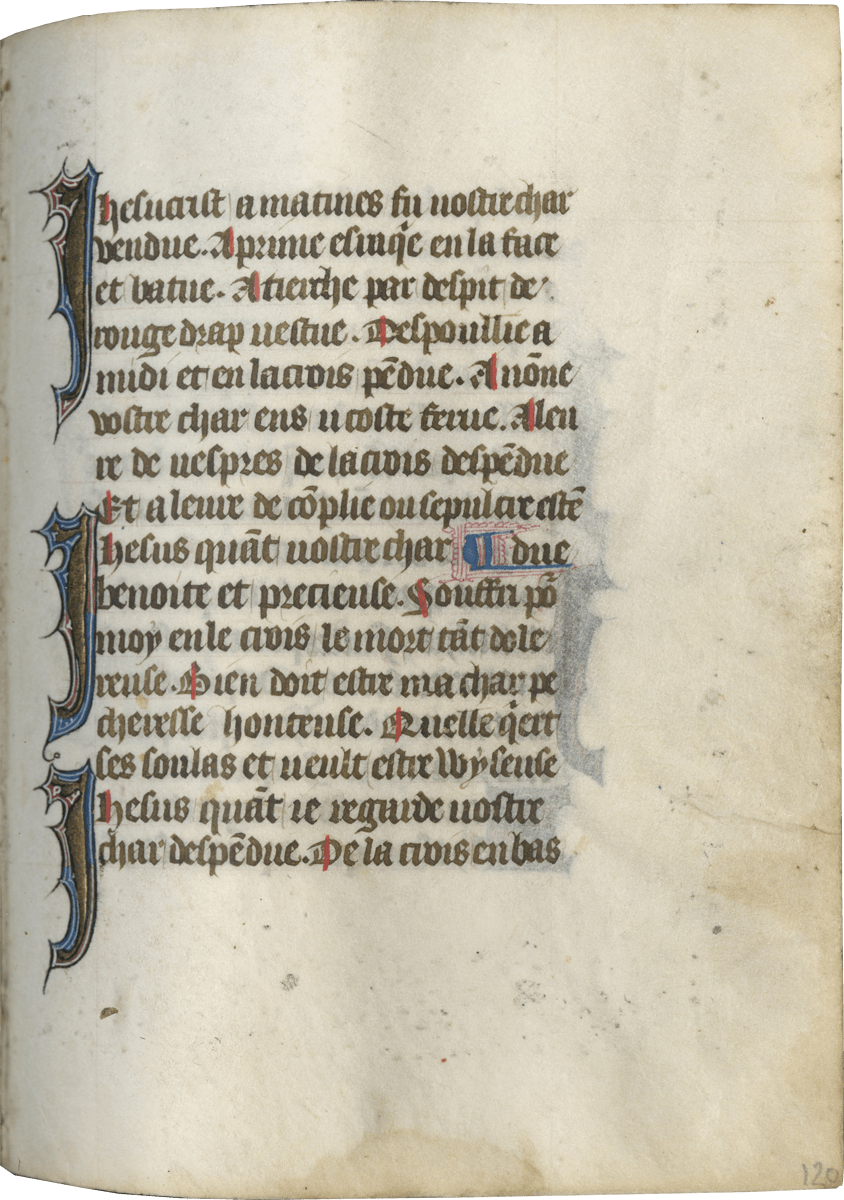 Ihesucrist a matines fu uostre char
vendue. A prime escinq̃e en la face
et batue. A tierche par despit de
rouge drap uestue. Despoullie a
midi et en la crois pẽdue. A nõne
vostre char ens u coste ferue. A leu
re de uespres de la crois despẽdue
Et a leure de cõplie ou sepulcre estẽ
Ihesus quãt uostre char due
benoite et precieuse. Souffri põ
moy en le crois le mort tãt dole
reuse. Bien doit estre ma char pe
cheresse honteuse. Quelle q̃ert
ses soulas et ueult estre wyseuse
Ihesus quãt ie regarde uostre
char despẽdue. De la crois en bas
120